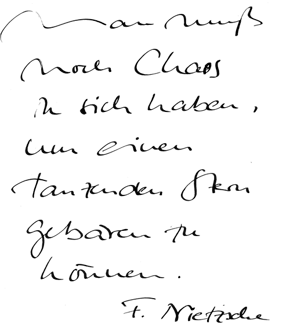 Man muß
noch Chaos
in sich haben,
um einen
tanzenden Stern
gebären zu
können.
F. Nietzsche